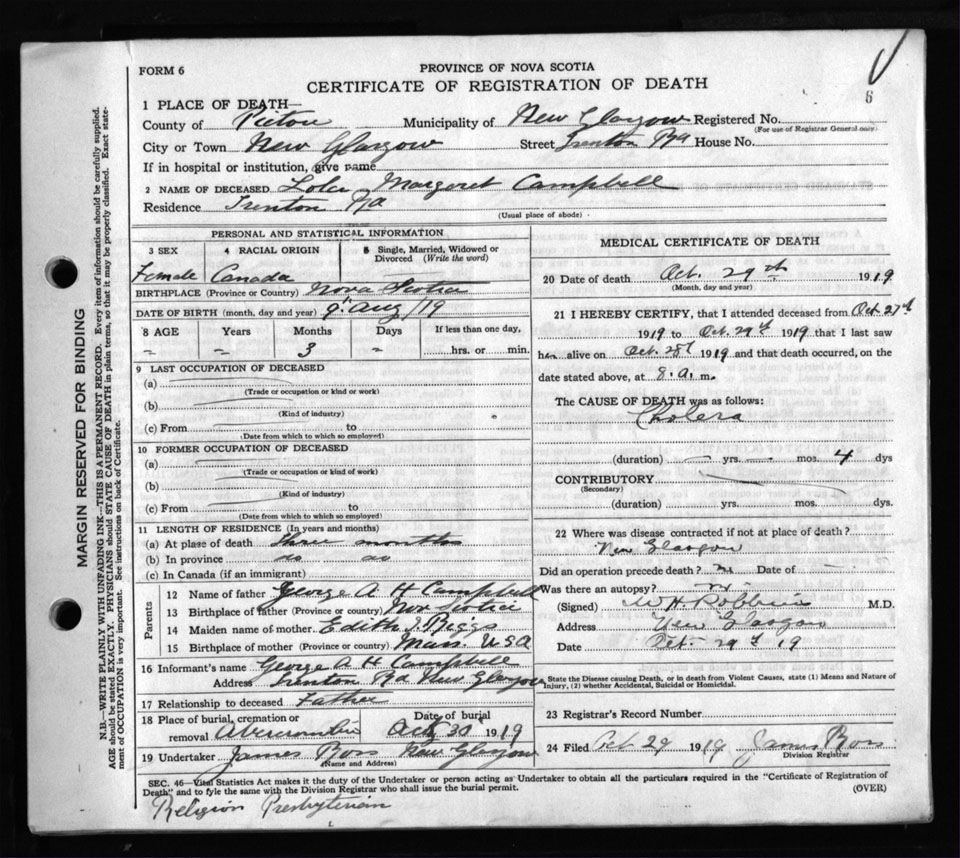 FORM 6
PROVINCE OF NOVA SCOTIA
6
CERTIFICATE OF REGISTRATION OF DEATH
MARGIN RESERVED FOR BINDING
N.B.—WRITE PLAINLY WITH UNFADING INK—THIS IS A PERMANENT RECORD. Every item of information should be carefully supplied.
AGE should be stated EXACTLY. PHYSICIANS should STATE CAUSE OF DEATH in plain terms, so that it may be properly classified. Exact state-
ment of OCCUPATION is very important. See instructions on back of Certificate.
1 PLACE OF DEATH—
County of Pictou Municipality of New Glasgow Registered No.
(For use of Registrar General only)
City or Town New Glasgow Street Trenton Rd House No.
If in hospital or institution, give name
2 NAME OF DECEASED Lola Margaret Campbell
Residence Trenton Rd
(Usual place of abode)
PERSONAL AND STATISTICAL INFORMATION
3 SEX 4 RACIAL ORIGIN 5 Single, Married, Widowed or Divorced (Write the word)
Female Canada
BIRTHPLACE (Province or Country) Nova Scotia
DATE OF BIRTH (month, day and year) 9 Aug/19
8 AGE Years Months Days If less than one day,
3 hrs. or min.
9 LAST OCCUPATION OF DECEASED
(a)
(Trade or occupation or kind or work)
(b)
(Kind of industry)
(c) From to
(Date from which to which so employed)
10 FORMER OCCUPATION OF DECEASED
(a)
(Trade or occupation or kind of work)
(b)
(Kind of industry)
(c) From to
(Date from which to which so employed)
11 LENGTH OF RESIDENCE (In years and months)
(a) At place of death three months
(b) In province do do
(c) In Canada (if an immigrant)
Parents
12 Name of father George A H Campbell
13 Birthplace of father (Province or country) Nov Scotia
14 Maiden name of mother Edith J. Biggs
15 Birthplace of mother (Province or country) Mass. USA
16 Informant's name George A H Campbell
Address Trenton Rd New Glasgow
17 Relationship to deceased Father
18 Place of burial, cremation or removal Abercrombie Date of burial Oct 30 1919
19 Undertaker James Ross New Glasgow
(Name and Address)
MEDICAL CERTIFICATE OF DEATH
20 Date of death Oct. 29th 1919
(Month, day and year)
21 I HEREBY CERTIFY, that I attended deceased from Oct 27th
1919 to Oct. 29th 1919 that I last saw
her alive on Oct. 28th 1919 and that death occurred, on the
date stated above, at 8. a. m.
The CAUSE OF DEATH was as follows:
Cholera
(duration) yrs. mos. 4 dys
CONTRIBUTORY
(Secondary)
(duration) yrs. mos. dys.
22 Where was disease contracted if not at place of death?
New Glasgow
Did an operation precede death? no Date of
Was there an autopsy? no
(Signed) W.H. Robbins M.D.
Address New Glasgow
Date Oct. 29th 19
State the Disease causing Death, or in death from Violent Causes, state (1) Means and Nature of
Injury, (2) whether Accidental, Suicidal or Homicidal.
23 Registrar's Record Number
24 Filed Oct 29 1919 James Ross
Division Registrar
SEC. 46—Vital Statistics Act makes it the duty of the Undertaker or person acting as Undertaker to obtain all the particulars required in the "Certificate of Registration of
Death" and to fyle the same with the Division Registrar who shall issue the burial permit.
(OVER)
Religion Presbyterian